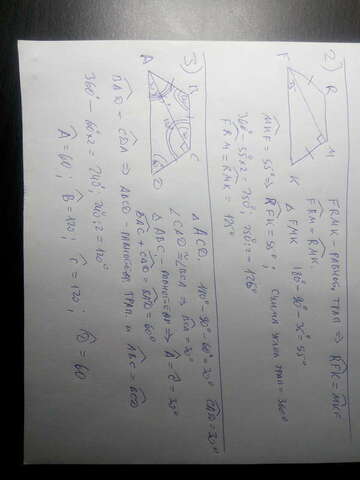 2)
F R M K
FRMK - равноб. трап ⇒ RFK = MKF
FRM = RMK.
△ FMK 180° - 90° - 35° = 55°
MKF = 55° ⇒ RFK = 55°; Сумма углов трап = 360°
360° - 55°×2 = 250°; 250:2 = 125°
FRM = RMK = 125°
3)
A B C D
△ ACD, 180° - 90° - 60° = 30° CAD = 30°
∠CAD = ∠BCA ⇒ BCA = 30°
△ ABC - равнобедр ⇒ A = C = 30°
BAC + CAD = BAD = 60°
BAD = CDA ⇒ ABCD - равнобед. трап. и ABC = BCD
360° - 60×2 = 240°, 240:2 = 120°
A = 60; B = 120; C = 120; D = 60